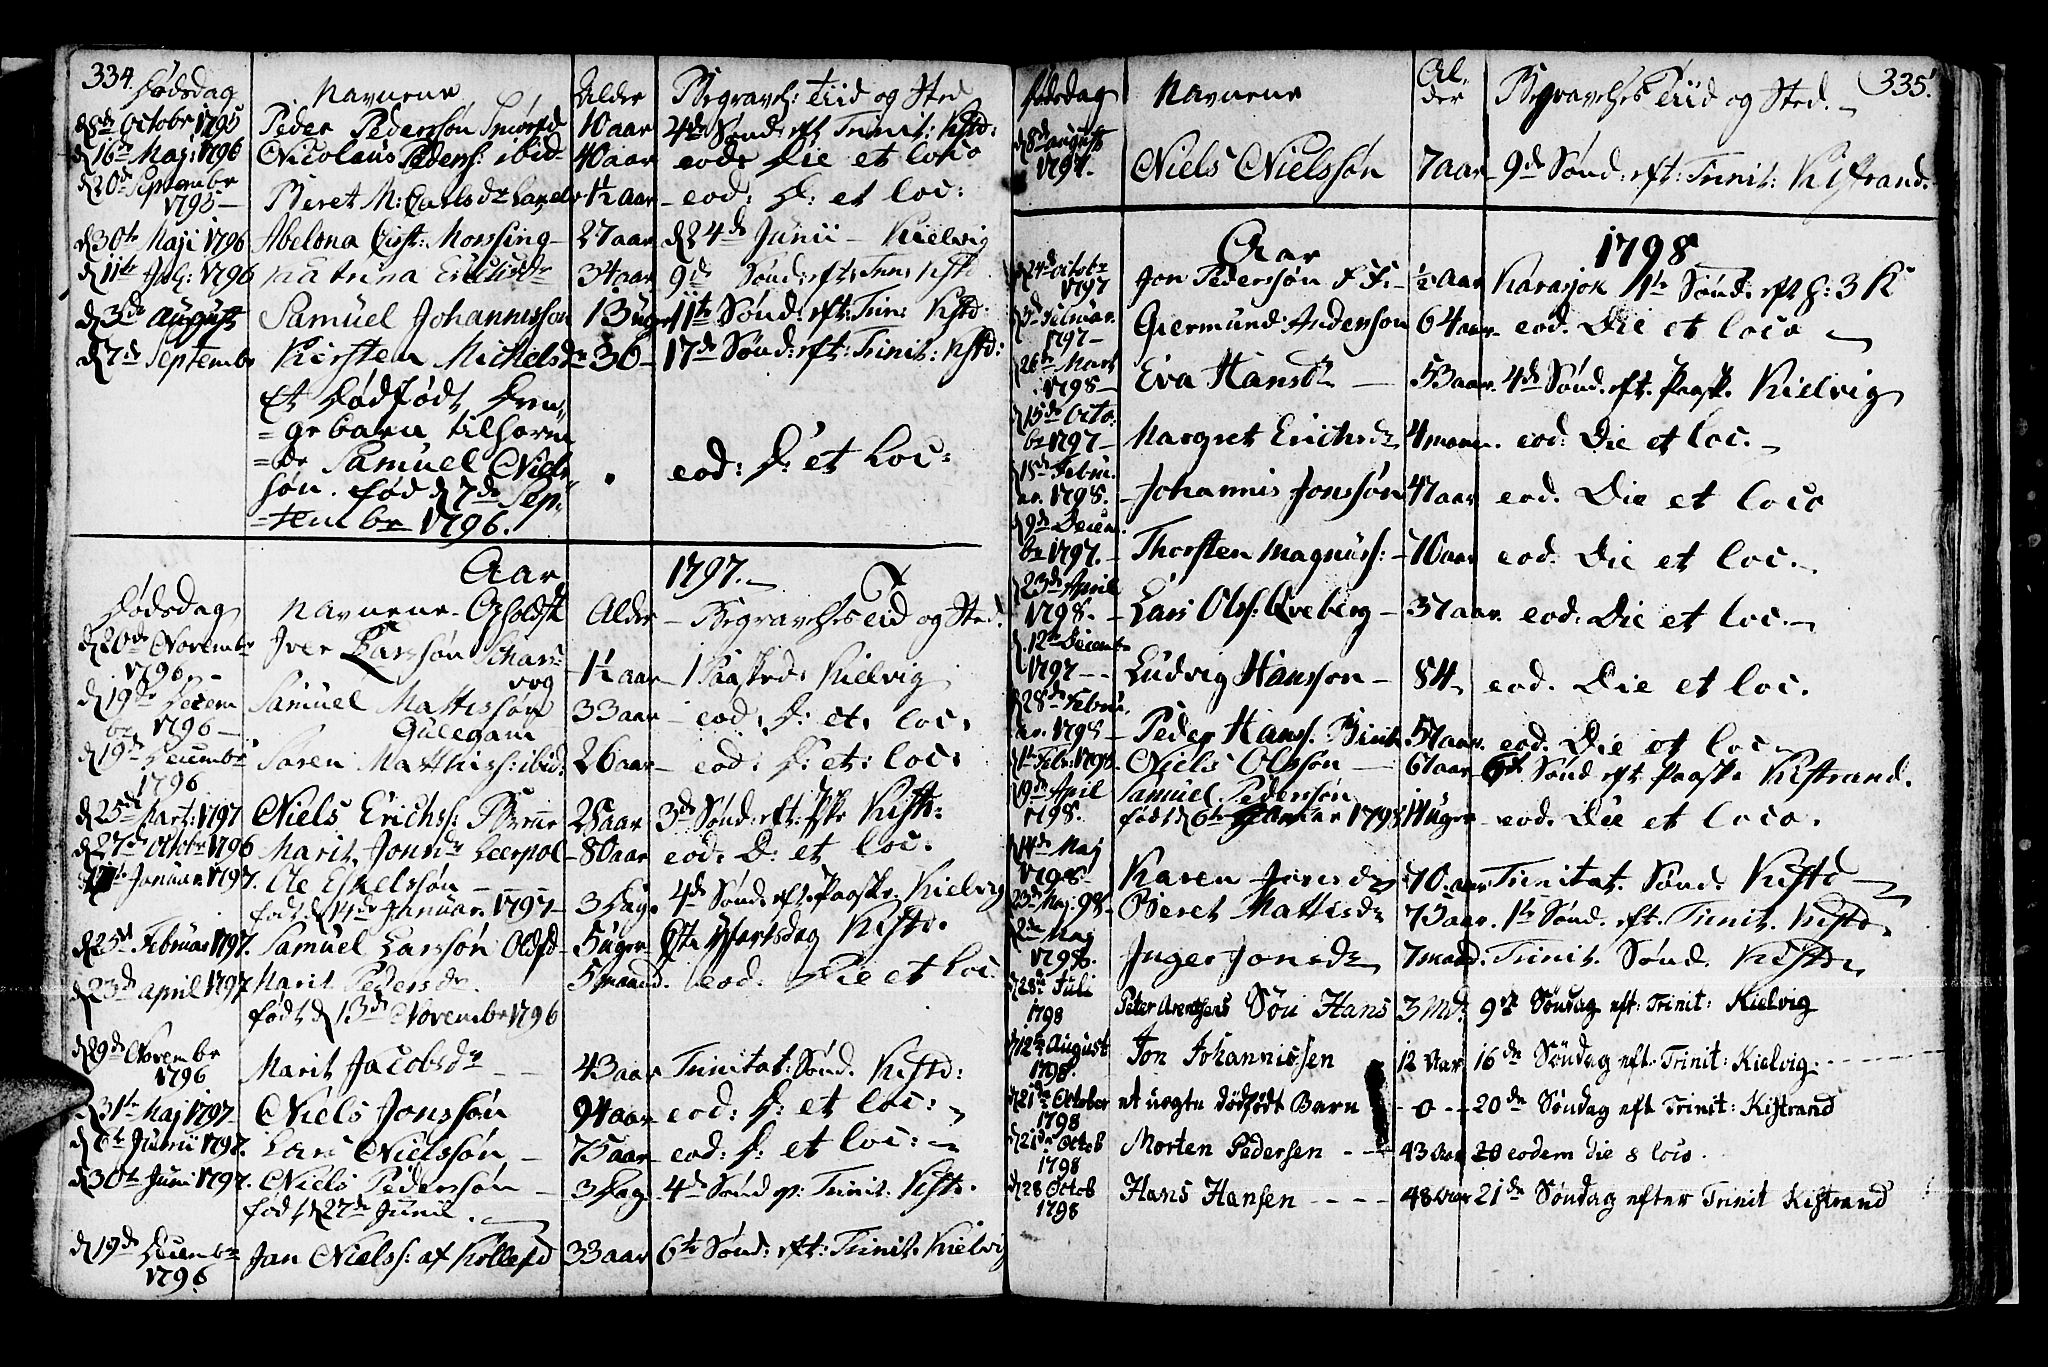 334.
Dødsdag Navnene Alder Begravels: Tiid og Sted
d 8de Octobr 1795 Peder Pederssøn Smørfd 10 aar 4de Sønd: eft Trinit: Kistd:
d 16te Maj: 1796 Nicolaus Peders: ibid 40 aar eode Die et loco
d 20de Septembr 1795 Beret M: Carlsdr 1½ aar eod: D: et loc:
d 30te Maji 1796 Abelona Christ: Morsing 27 aar d 24de Junii Kielvig
d 11te Jul: 1796 Katrina Erichsdr 34 aar 9de Sønd: eft: Trin: Kistd
d 3de August Samuel Johannissøn 13 uger 11te Sønd: eft: Trin: Kistd:
d 7de Septembr Kirsten Michelsdr 36 17de Sønd: eft: Trinit: Kistd:
Et Dødfødt Dren=
=gebarn tilhøren=
=de Samuel Niels=
søn. fød d 7de Sep= eod: D: et Loc:
=tembr 1796.
Aar 1797.
Dødsdag Navnene Alder Begravelses Tiid og Sted.
d 20de Novembr 1796 Iver Larssøn 1½ aar 1 Paasked: Kielvig
d 19de Decembr 1796 Samuel Mattissøn 33 aar eod: D: et: loc:
Gulegam
d 19de Decembr 1796 Søren Matthiss: ibid: 26 aar eod: D: et: loc:
d 25de Mart: 1797 Niels Erichss: 28 aar 3de Sønd: eft: Kistr:
d 27de Octobr 1796 Marit Jonsdr Leerpol 80 aar eod. D: et loc:
Januar 1797. Ole Eskelssøn
fød d 14de Januar. 1797 3 Dage 4de Sønd: eft. Paaske. Kielvig
d 25de Februar 1797. Samuel Larssøn Oldfd 5 uger Kistr.
d 23de April 1797 Marit Pedersdr 5 maand. eod. Die et Loc.
født d 13de Novembr 1796
d 29de Novembr 1796 Marit Jacobsdr 43 aar Trinitat: Sønd. Kistd:
d 31te Maj 1797 Niels Jonssøn 94 aar eod: D: et loc:
d 6te Junii 1797. Lars Nielssøn 75 aar eod: D: et loc:
d 30te Juni 1797. Niels Pederssøn 3 Dag. 4de Sønd p: Trinit. Kistr.
født d 27de Junii.
d 19de Decembr 1796 Jan Nielss: af Kollefd 33 aar 6te Sønd: eft: Trinit. Kielvig
335.
Dødsdag Navnene Alder Begravelses Tiid og Sted.
d 8de August 1797. Niels Nielssøn 7 aar 9de Sønd: eft: Trinit: Kistrand.
Aar 1798
d 24de Octobr 1797 Jon Pederssøn ½ Aar Karasjok 1te Sønd: eft H: 3 K
Februar. 1797 Giermund Anderssøn 64 aar eod. Die et loco
26de Mart 1798 Eva Hansdr 53 aar. 4de Sønd. eft. Paask. Kielvig
d 15de Octobr 1797 Margret Erichsdr 4 maan. eod: Die et loc.
d 18de Februar. 1798. Johannis Jonssøn 47 aar eod. Die et loco
d 9de Decembr 1797. Thorsten Magnuss: 70 aar eod. Die et loc.
d 23de April 1798. Lars Olss: Qveberg 37 aar. eod. Die et loc.
d 12te Decembr 1797 Ludvig Hanssøn 84 eod. Die et loc.
d 28de Februar. 1798 Peder Hanss. 57 aar. eod. Die et loc.
d 1te Febr: 1798 Niels Olssøn 67 aar 6te Sønd eft Paaske Kistrand.
d 9de April 1798. Samuel Pederssøn
født d 6te Januar 1798 14 uger eod. Die et loco.
d 14de Maj 1798 Karen Jonsdr 70. aar Trinitat. Sønd. Kistd
23de Maj. 98. Beret Mattisdr 75 aar. 1te Sønd. eft. Trinit. Kistd.
d 2de Maj 1798. Inger Jonsdr 7 maad: Trinit. Sønd. Kistr.
d 28de Juli 1798 Peter Arentsens Søn Hans 3 Md. 9de Søndag eft: Trinit: Kielvig
d 12te August 1798. Jon Johannissen 12 Aar 16de Søndag eft. Trinit: Kielvig.
d 21de October 1798 et uægte dødfødt Barn - 0 - 20de Søndag eft Trinit: Kistrand
d 21de Octob 1798 Morten Pedersen 43 Aar 20 eodem die & loco.
d 28 Octob 1798 Hans Hansen 48 Aar 21de Søndag efter Trinit Kistrand